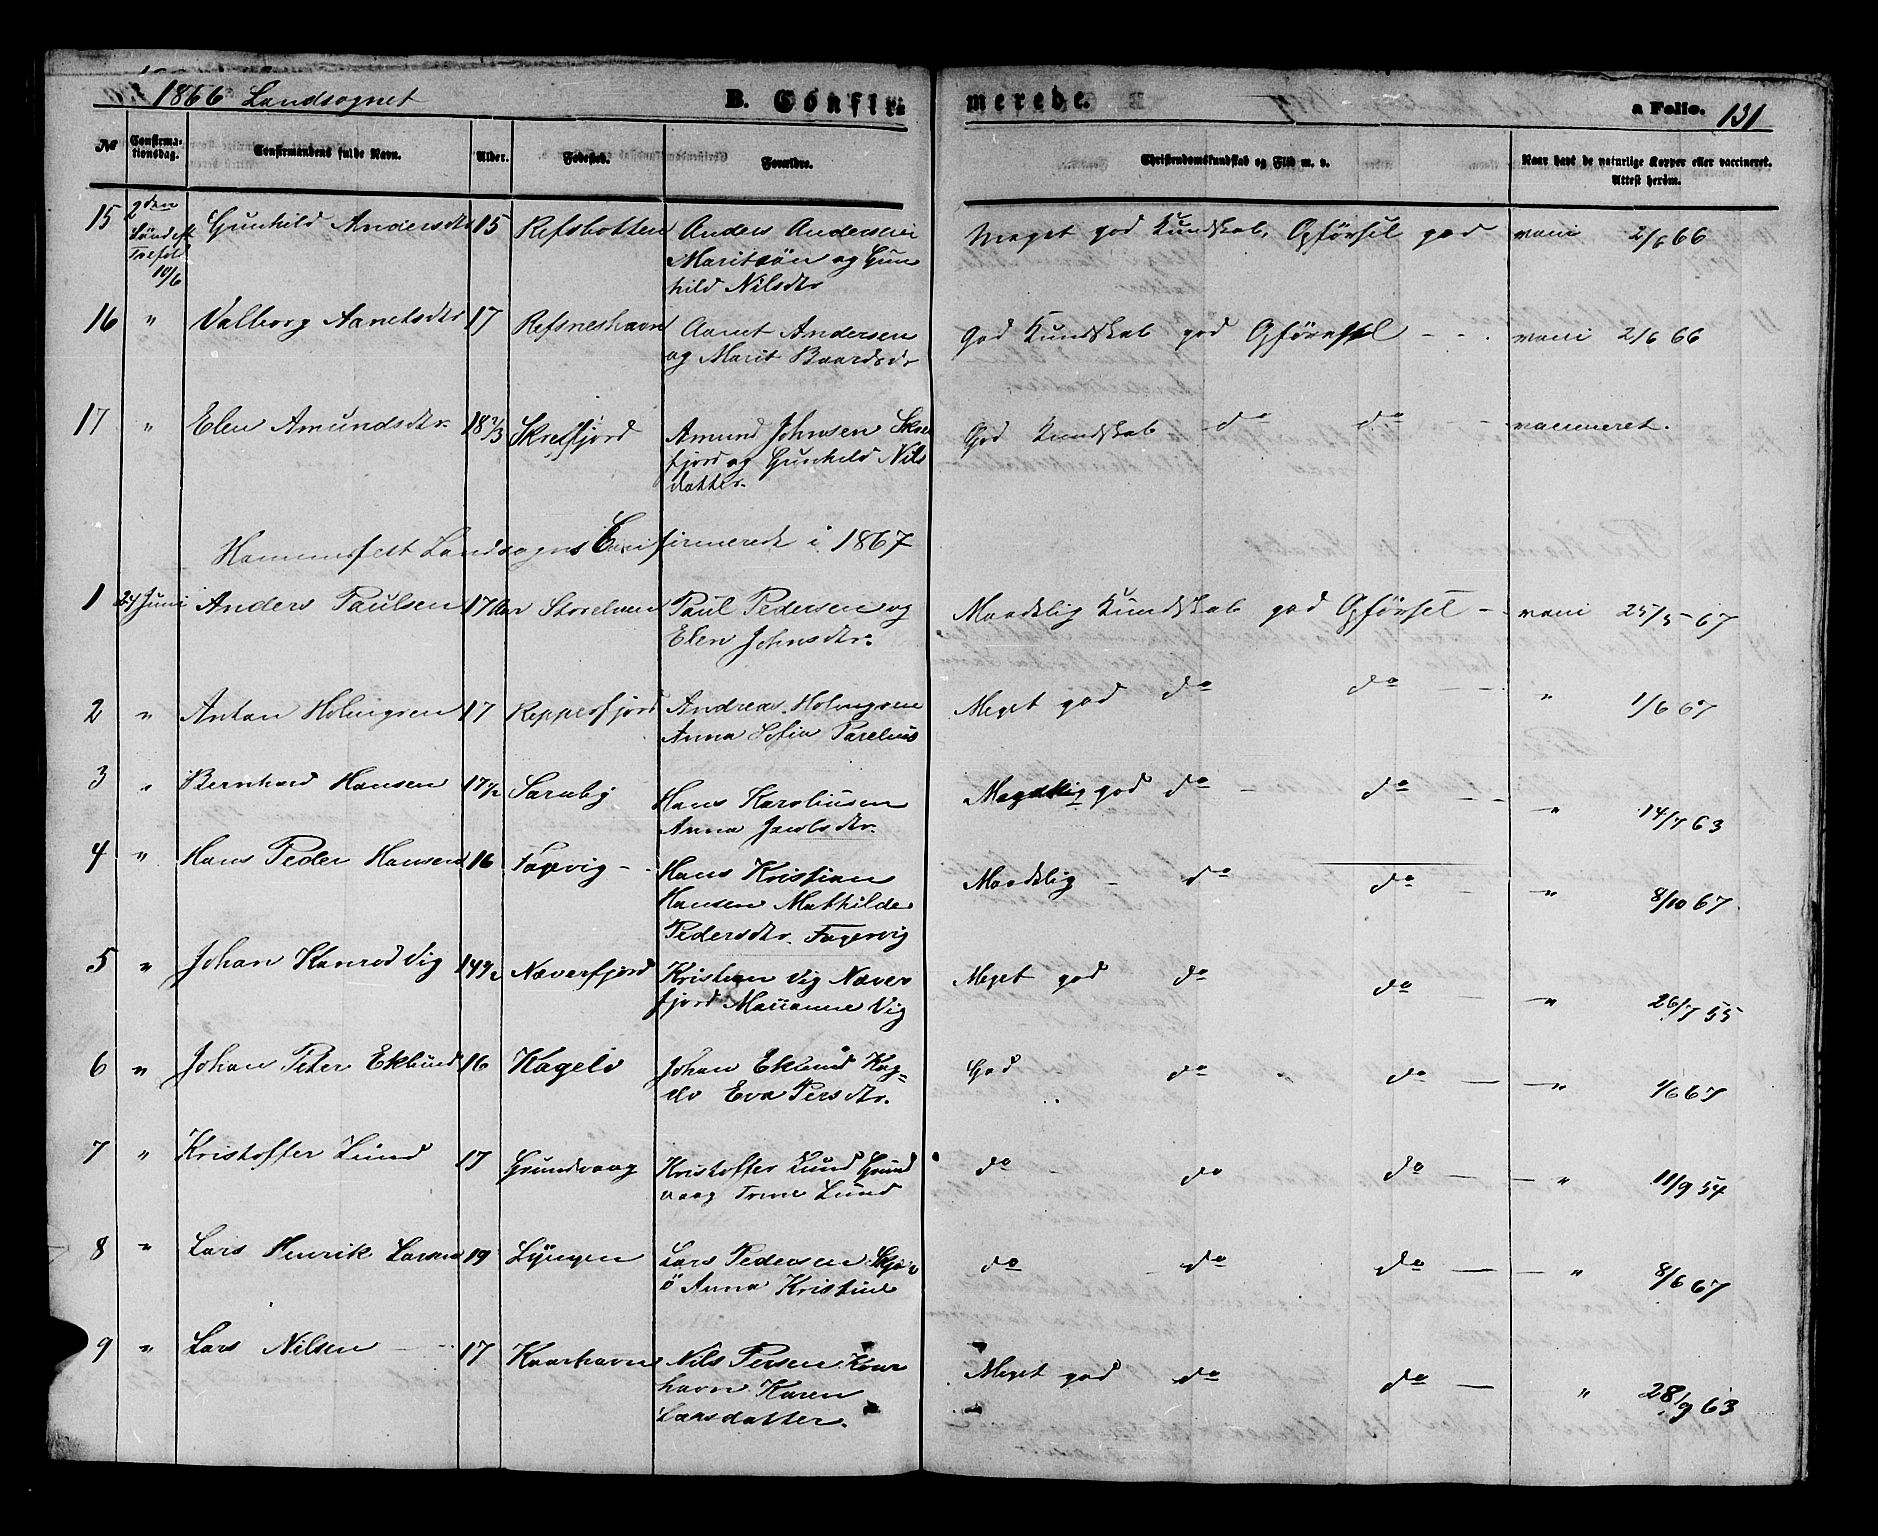 1866 Landsognet B. Confirmerede. a Folio. 131
No Confirmationsdag. Confirmandens fulde Navn. Alder. Fødested. Forældre. Christendomskundskab og Flid m. v. Naar havt de naturlige Kopper eller vaccineret. Attest herom.
15 2den Søndag Trefol 10/6 Gunhild Andersdtr 15 Refsbotten Anders Andersen Meget god Kundskab, Opførsel god vacci 2/6 66
Maritsön og Gun
hild Nilsdtr
16 " Valborg Aanetsdtr 17 Refsneshavn Aanet Andersen God Kundskab god Opførsel - - . vacci 2/6 66
og Marit Baardsdr
17 " Elen Amundsdtr. 18 2/3 Skreifjord Amund Johnsen Skrei God Kundskab do do - - vaccineret.
fjord og Gunhild Nils
datter.
Hammerfest Landsogns Confirmerede i 1867
1 24 Juni Anders Paulsen 17 Aar Storelven Paul Pedersen og Maadelig Kundskab god Opførsel - vacci 25/5 67
Elen Johnsdtr.
2 " Anton Holmgren 17 Repperfjord Andreas Holmgren Meget god do do - - " 1/6 67
Anna Sofia Parelius
3 " Bernhard Hansen 17 1/2 Saraby Hans Karoliusen god do - do - - " 14/7 63
Anna Jacobsdtr.
4 " Hans Peder Hansen 16 Fagervig - Hans Kristian Maadelig - do do - " 8/10 67
Hansen Mathilde
Pedersdtr. Fagervig
5 " Johan Konrad Vig 14 1/2 Næverfjord Kristian Vig Næver Meget god do do - - " 26/7 55
fjord Marianne Vig
6 " Johan Peter Eklund 16 Kagelv Johan Eklund Kag= God do do - - " 1/6 67
elv Eva Persdtr.
7 " Kristoffer Lund 17 Grundvaag Kristoffer Lund Grund do - do do - - " 11/9 54
vaag Trine Lund
8 " Lars Henrik Larsen 19 Lyngen Lars Pedersen do - do do - - " 8/6 67
ö Anna Kristine
9 " Lars Nilsen 17 Kaarhavn Nils Persen Kaar Meget god do do - " 28/9 63
havn Karen
Larsdatter.